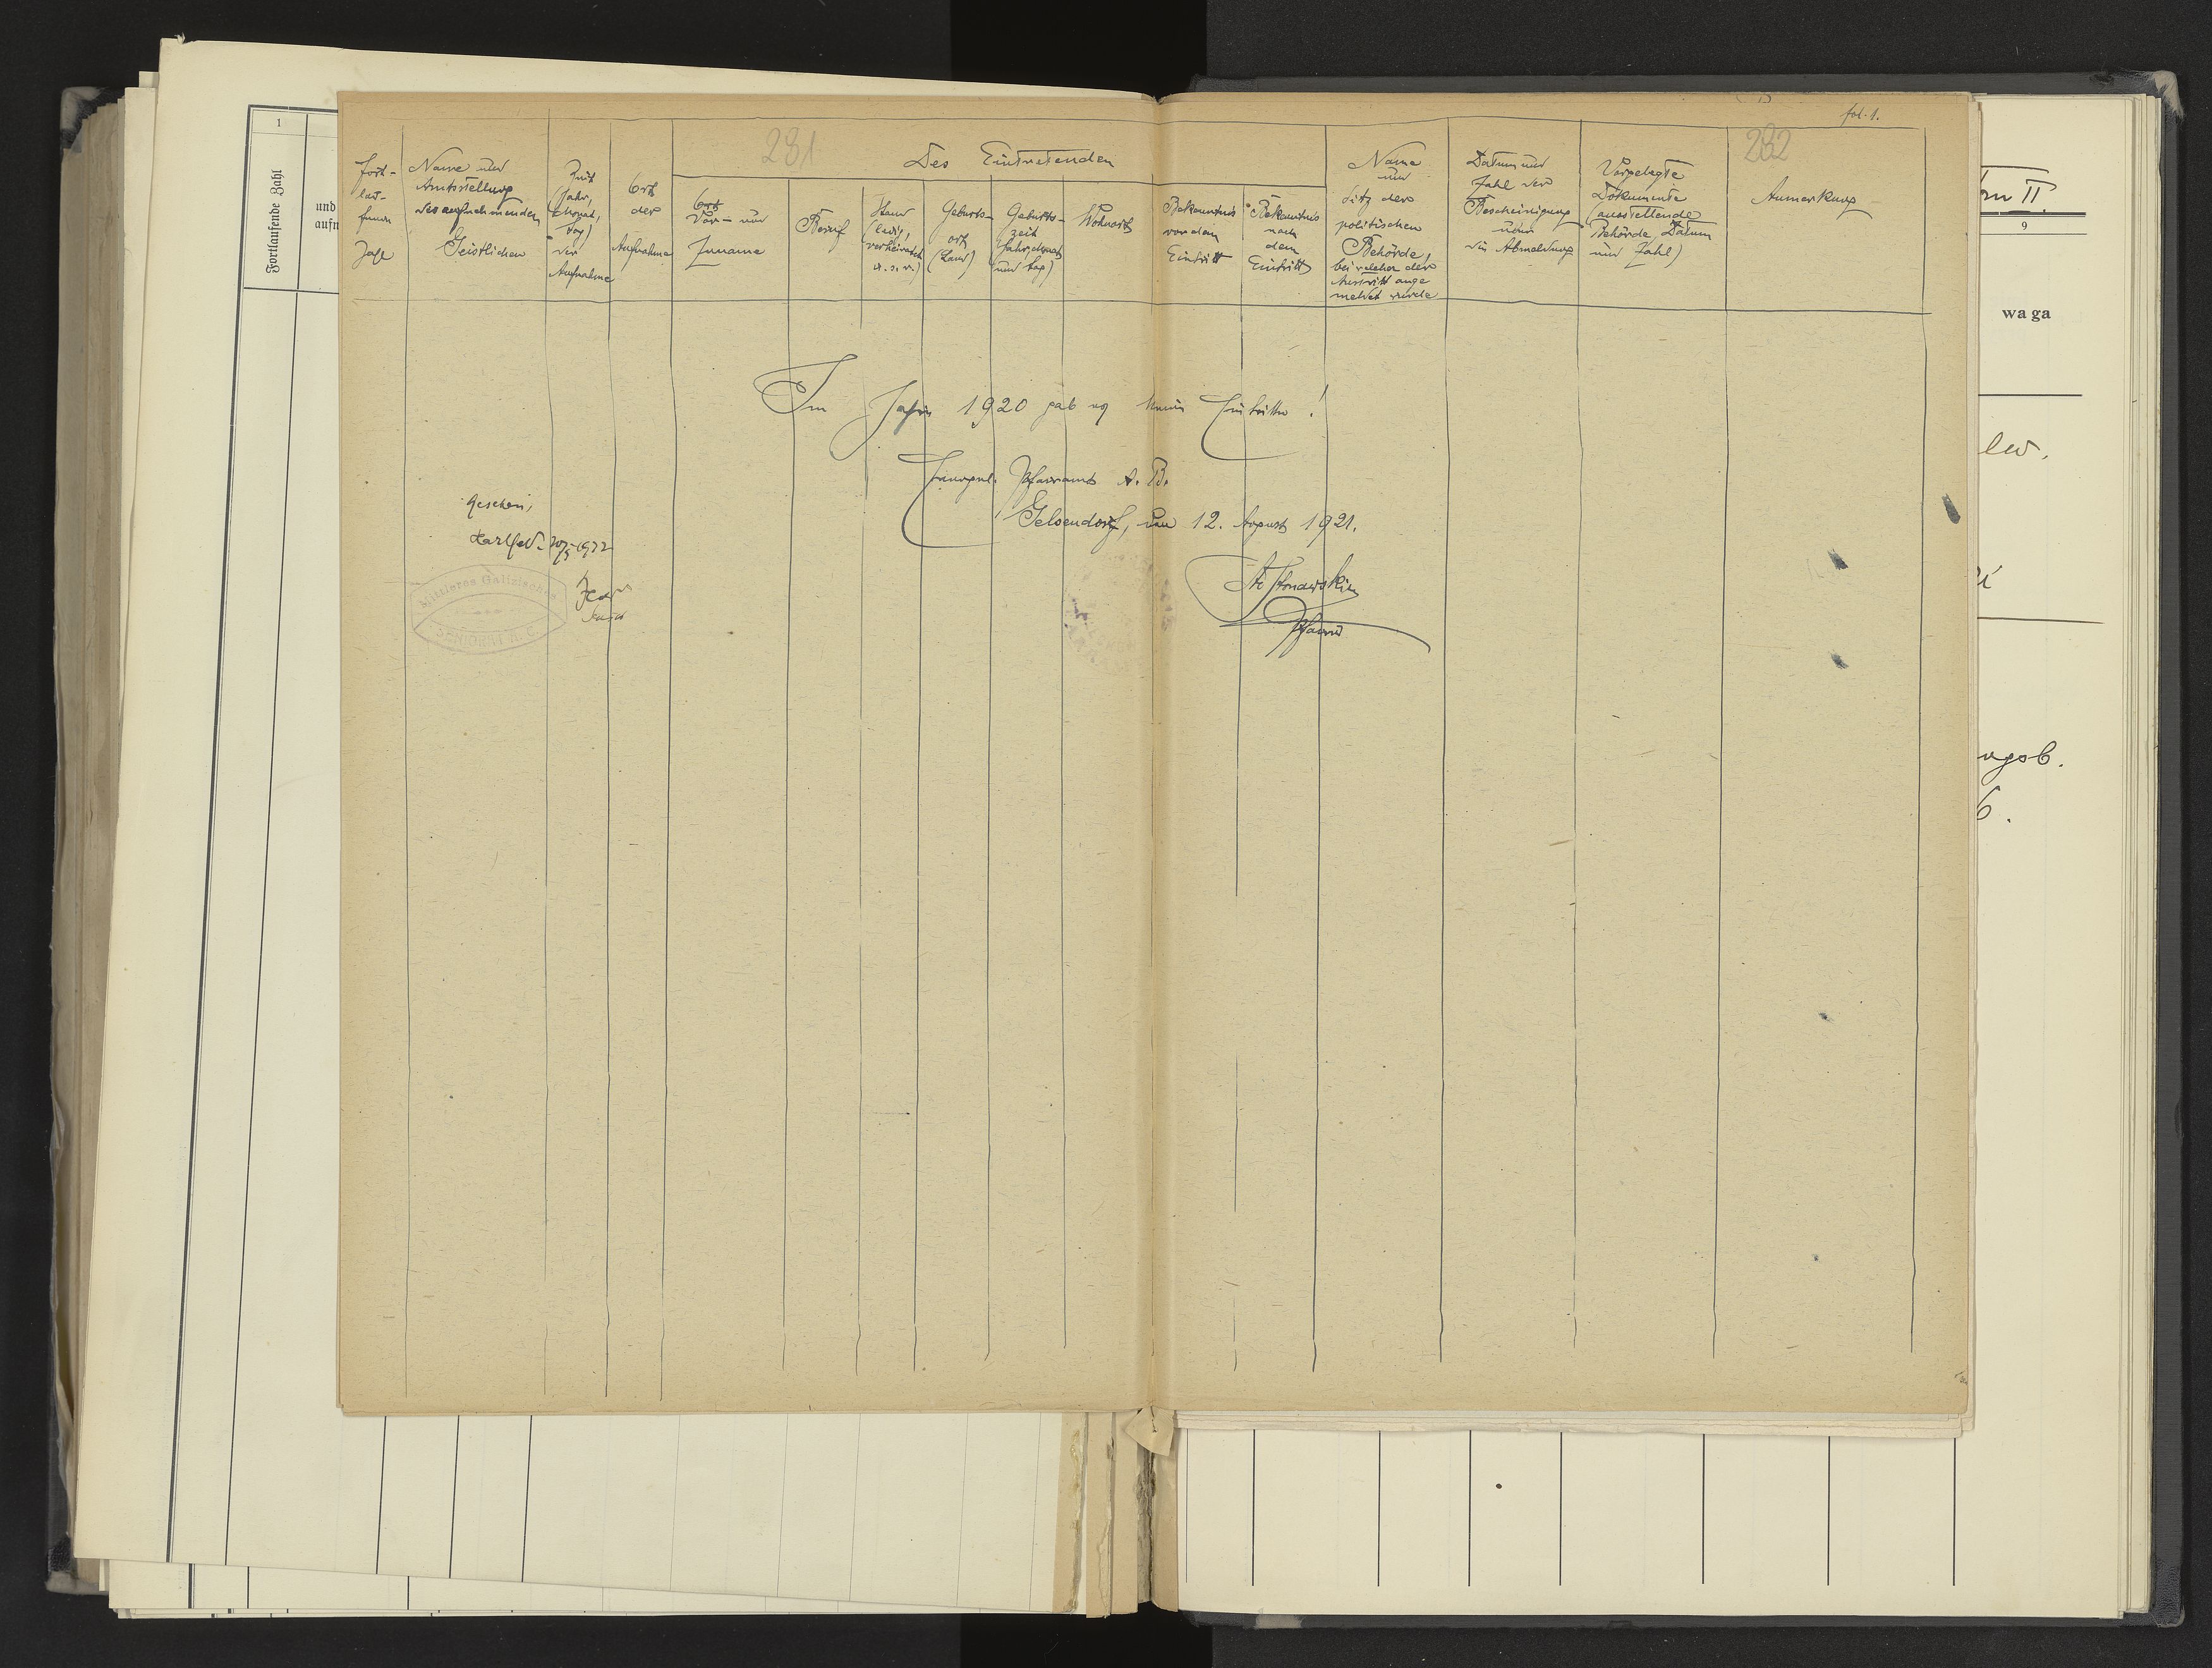 281
282
fol. 1.
Fort-
lau-
fende
Zahl
Name und
Amtsstellung
des aufnehmenden
Geistlichen
Zeit
(Jahr,
Monat,
Tag)
der
Aufnahme
Ort
der
Aufnahme
Des Eintretenden
Ort
Vor- und
Zuname
Beruf
Stand
(ledig,
verheiratet
u. s. w.)
Geburts-
ort
(Land)
Geburts-
zeit
(Jahr, Monat
und Tag)
Wohnort
Bekenntnis
vor dem
Eintritt
Bekenntnis
nach
dem
Eintritt
Name
und
Sitz der
politischen
Behörde,
bei welcher der
Austritt ange
meldet wurde
Datum und
Zahl der
Bescheinigung
über
die Abmeldung
Vorgelegte
Dokumente
(ausstellende
Behörde, Datum
und Zahl)
Anmerkung
Im Jahre 1920 gab es keine Eintritte!
Evangel. Pfarramt A. B.
Gelsendorf, den 12. August 1921.
Pfarrer
Gesehen,
1922
Mittleres Galizisches
SENIORAT A. B.
1
Fortlaufende Zahl
und
aufn
II.
9
waga
lew.
6.